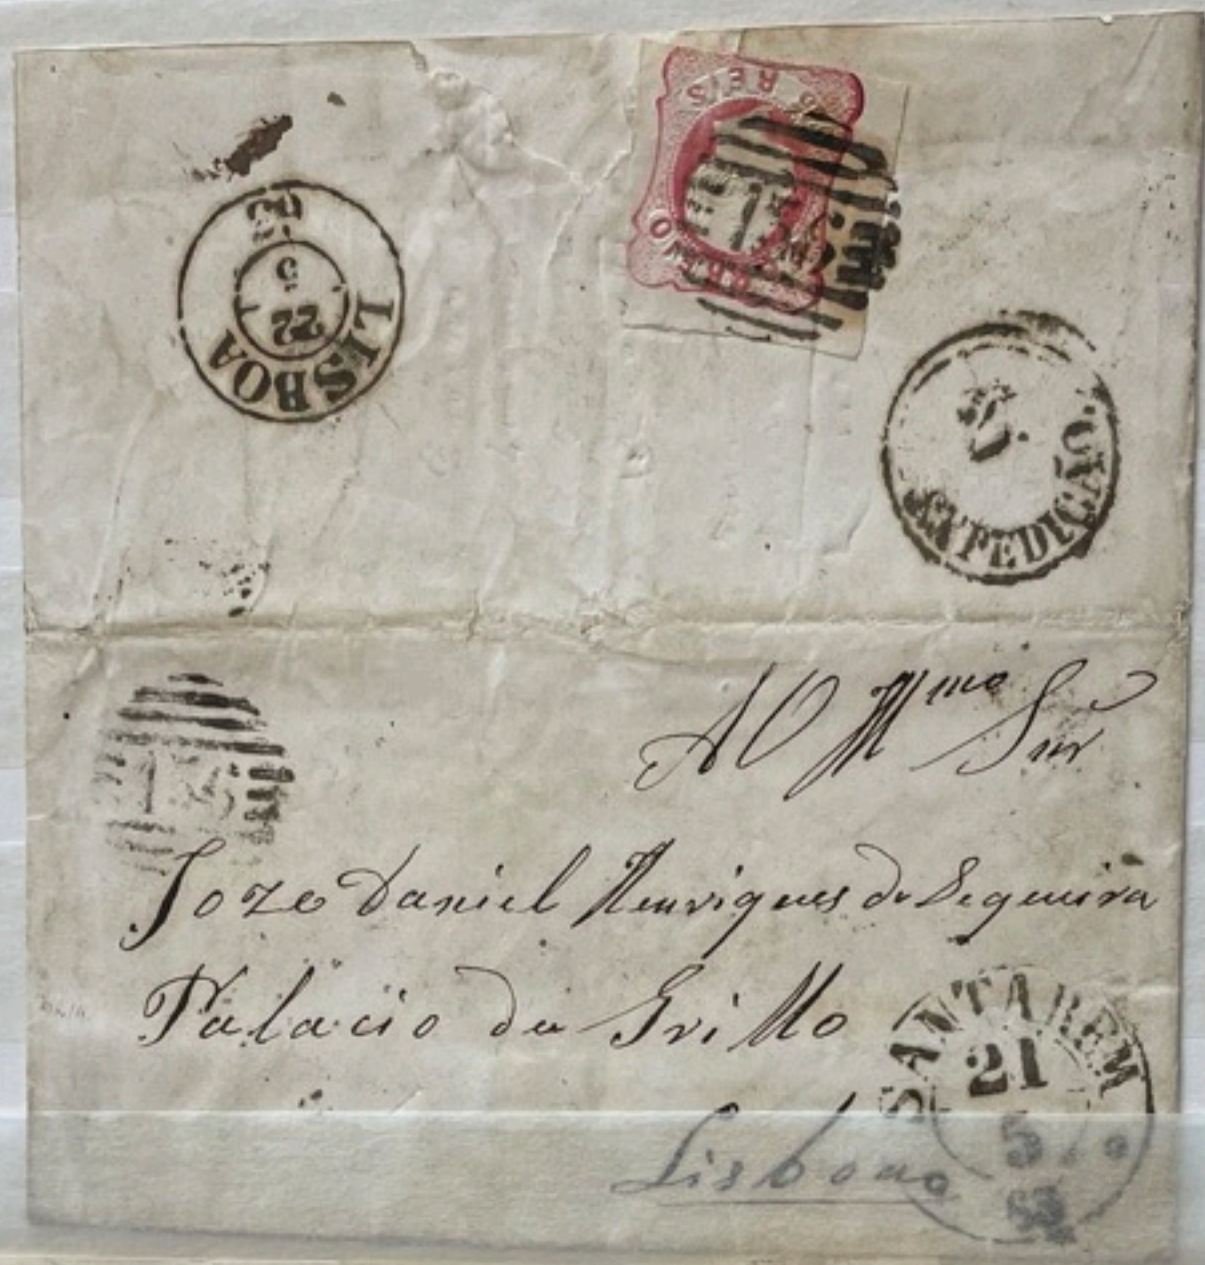 REIS
CORREIO
63
5
22
LISBOA
EXPEDIÇÃO
Ao Illmo Snr
Joze Daniel Henriques de Sequeira
Palacio do Grillo
Lisboa
SANTAREM
21
5
63